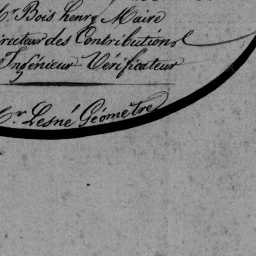 Mr Bois henry Maire
irecteur des Contributions
Ingénieur Verificateur
Mr Lesné Géométre